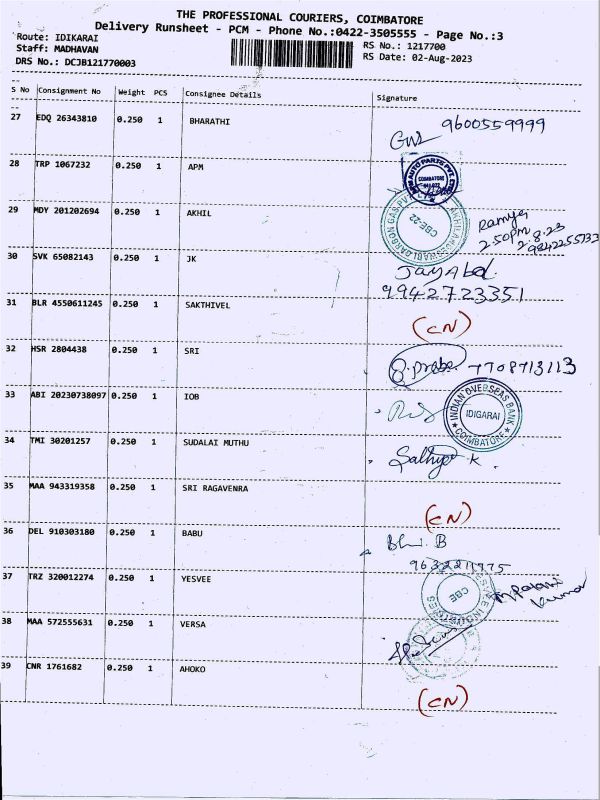 THE PROFESSIONAL COURIERS, COIMBATORE
Delivery Runsheet - PCM - Phone No.:0422-3505555 - Page No.:3
Route: IDIKARAI
RS No.: 1217700
Staff: MADHAVAN
RS Date: 02-Aug-2023
DRS No.: DCJB121770003
S No Consignment No Weight PCS Consignee Details Signature
27 EDQ 26343810 0.250 1 BHARATHI 9600559999
28 TRP 1067232 0.250 1 APM
COIMBATORE
29 MDY 201202694 0.250 1 AKHIL
CBE-22
Ramya
2.50pm 2.8.23
9842255733
30 SVK 65082143 0.250 1 JK
9942723351
31 BLR 4550611245 0.250 1 SAKTHIVEL
(CN)
32 HSR 2804438 0.250 1 SRI
7708713113
33 ABI 20230738097 0.250 1 IOB
INDIAN OVERSEAS BANK
IDIGARAI
COIMBATORE
34 TMI 30201257 0.250 1 SUDALAI MUTHU
35 MAA 943319358 0.250 1 SRI RAGAVENRA
(CN)
36 DEL 910303180 0.250 1 BABU
37 TRZ 320012274 0.250 1 YESVEE
CBE
38 MAA 572555631 0.250 1 VERSA
39 CNR 1761682 0.250 1 AHOKO
(CN)